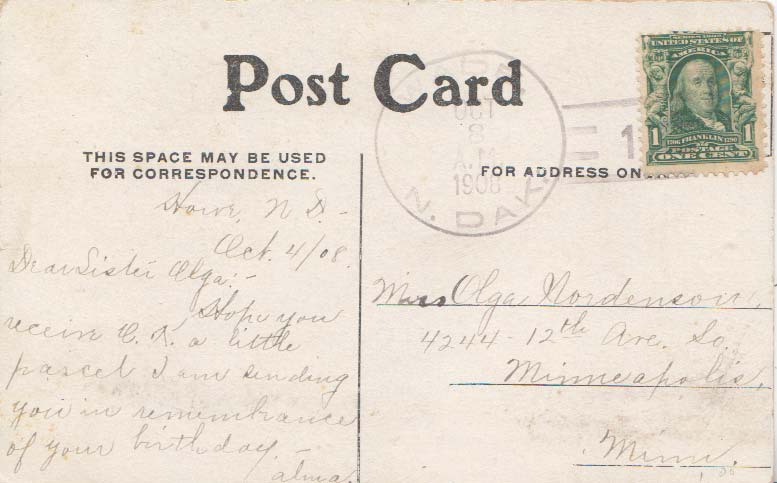 Post Card
THIS SPACE MAY BE USED
FOR CORRESPONDENCE.
Howe, N D. -
Oct. 4/08.
Dear Sister Olga: -
Hope you
receive O. K. a little
parcel I am sending
you in remembrance
of your birthday. -
Alma.
OCT
8
A.M.
1908
N. DAK.
SERIES 1902
UNITED STATES OF
AMERICA
1 1
1706 FRANKLIN 1790
POSTAGE
ONE CENT
1
FOR ADDRESS ON
Olga Nordenson,
4244 - 12th Ave. So.
Minneapolis,
Minn.